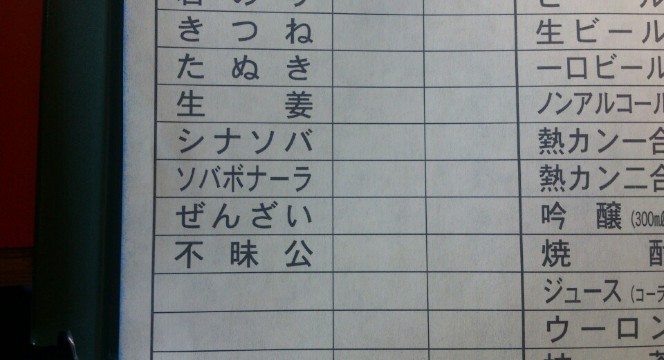 きつね
生ビール
たぬき
一口ビール
生姜
ノンアルコール
シナソバ
熱カン一合
ソバボナーラ
熱カン二合
ぜんざい
吟醸(300ml
不昧公
焼酎
ジュース(コーラ
ウーロン